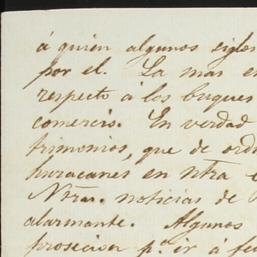 á quien algunos siglos
por el. La mas en
respecto á los buques
comercio. En verdad
trimonios, que de ord
huracanes en ntra e
Ntras. noticias de
alarmante. Algunos
prosecion p.ª ir á fe